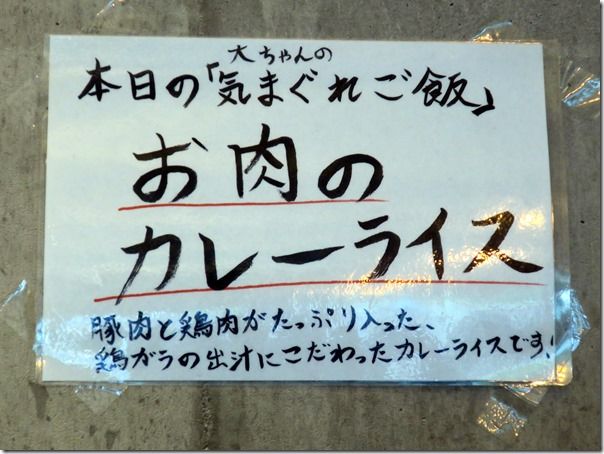 大ちゃんの
本日の「気まぐれご飯」
お肉の
カレーライス
豚肉と鶏肉がたっぷり入った、
鶏ガラの出汁にこだわったカレーライスです!